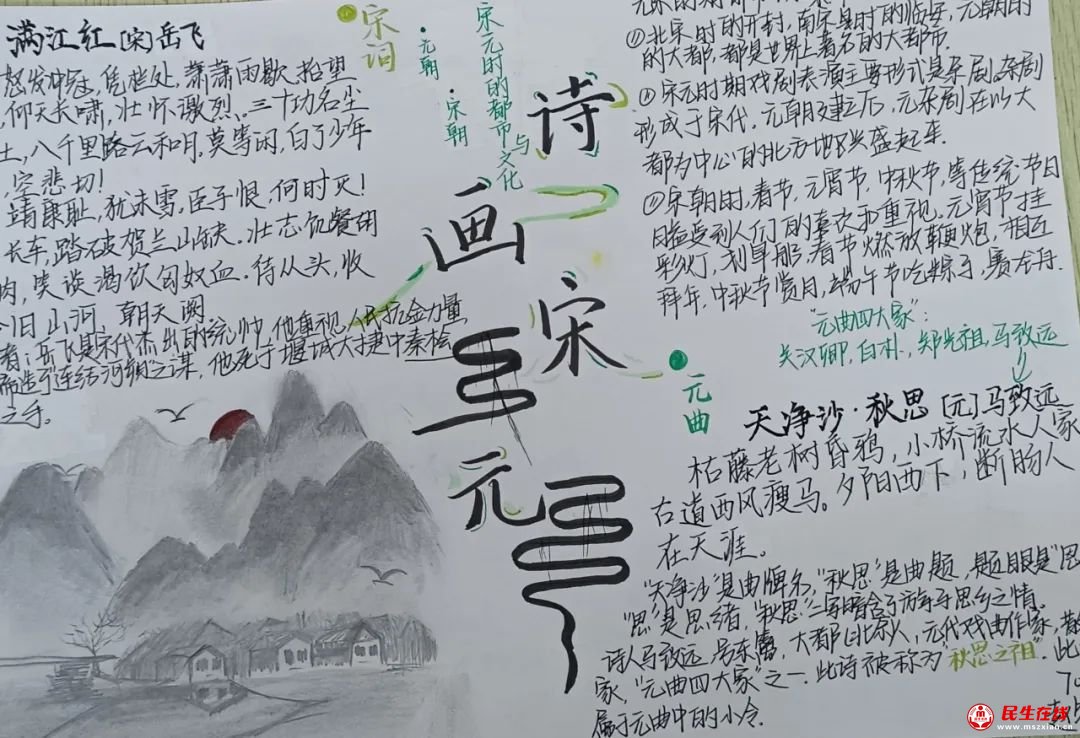 满江红 [宋] 岳飞
怒发冲冠,凭栏处,潇潇雨歇,抬望
,仰天长啸,壮怀激烈。三十功名尘
土,八千里路云和月。莫等闲,白了少年
,空悲切!
靖康耻,犹未雪,臣子恨,何时灭!
长车,踏破贺兰山缺。壮志饥餐胡
肉,笑谈渴饮匈奴血。待从头,收
旧山河,朝天阙。
者:岳飞是宋代杰出的统帅,他重视人民抗金力量,
造了"连结河朔"之谋,他死于郾城大捷中秦桧
之手。
宋词
宋元时的都市与文化
·元朝
·宋朝
诗
画
宋
元
元曲
①北宋时的开封,南宋时的临安,元朝的
的大都,都是世界上著名的大都市。
宋元时期戏剧表演主要形式是杂剧。杂剧
形成于宋代。元朝建立后,元杂剧在以大
都为中心的北方地区兴盛起来。
宋朝时,春节、元宵节、中秋节,等传统节日
日益受到人们的喜欢和重视。元宵节挂
彩灯,划旱船,春节燃放鞭炮,相互
拜年,中秋节赏月,端午节吃粽子,赛龙舟。
"元曲四大家":
关汉卿,白朴,郑光祖,马致远
天净沙·秋思 [元] 马致远
枯藤老树昏鸦,小桥流水人家
古道西风瘦马。夕阳西下,断肠人
在天涯。
"天净沙"是曲牌名,"秋思"是曲题,题眼是"思
"思"是思绪,"秋思"二字暗含了游子思乡之情。
诗人马致远,号东篱,大都(北京)人,元代戏曲作家,
家,"元曲四大家"之一.此诗被称为"秋思之祖".此
属于元曲中的小令.
民生在线
www.mszxian.cn